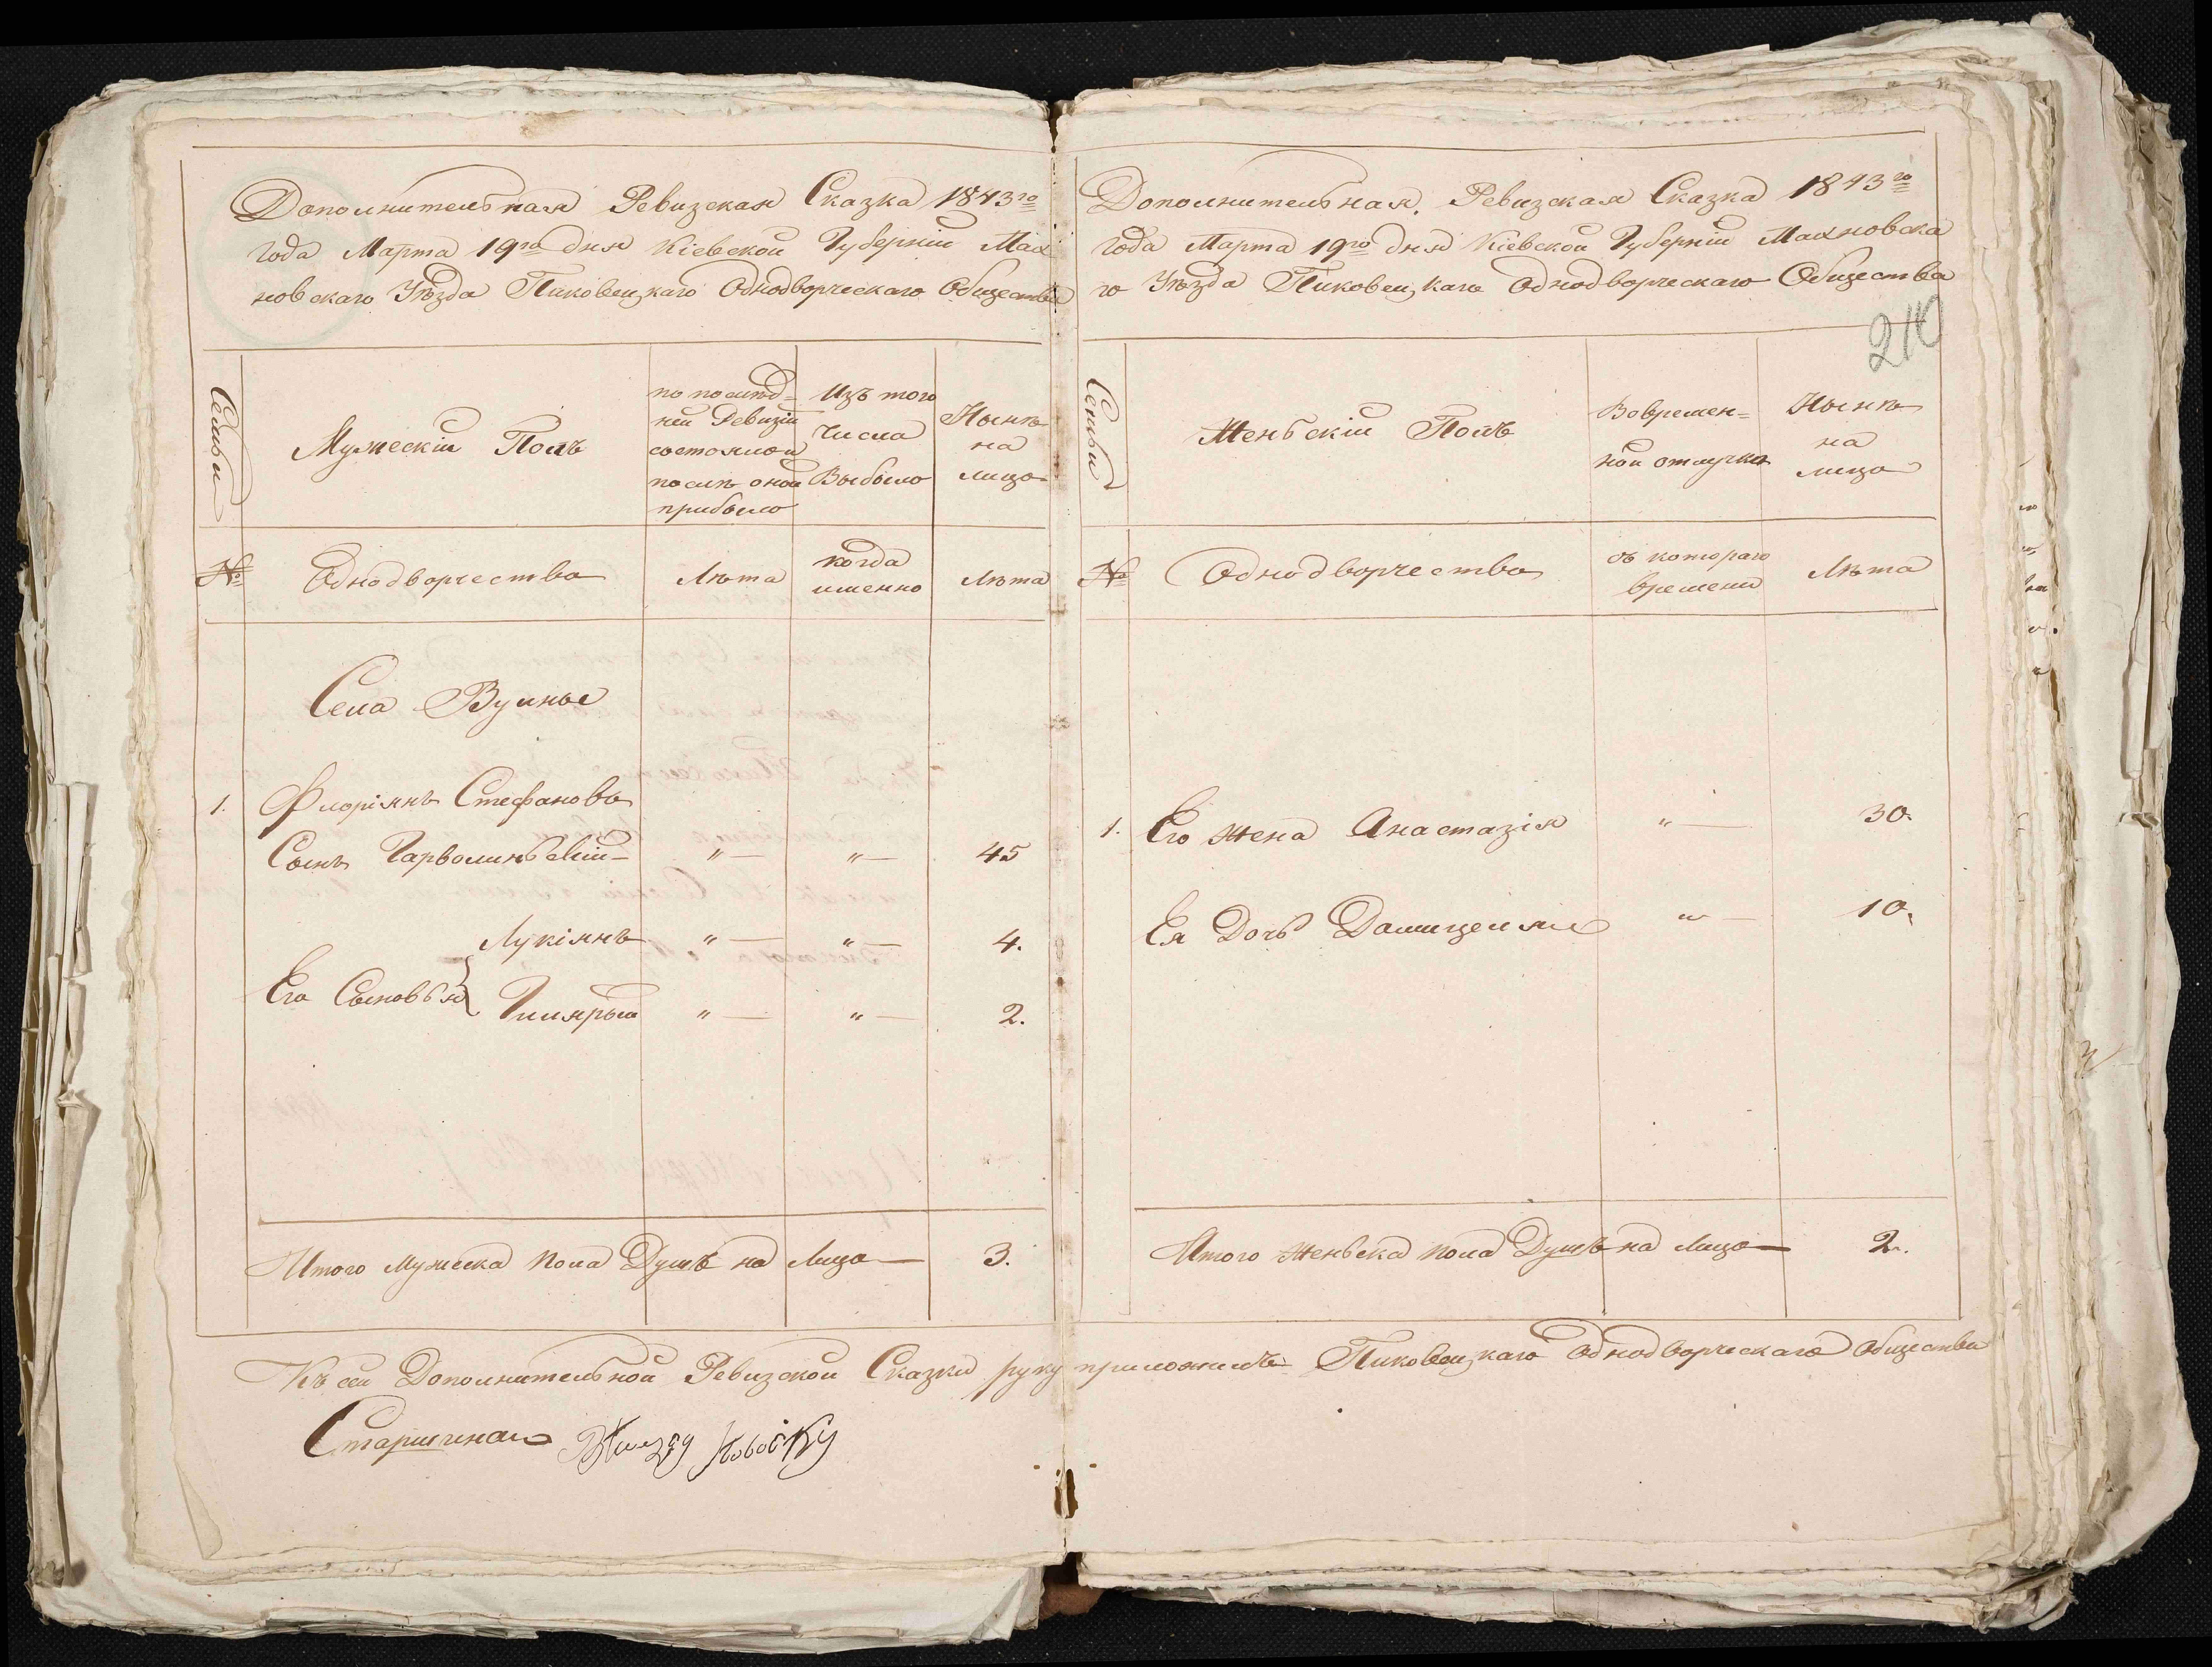 Дополнительная Ревизская Сказка 1843го
года Марта 19го дня Кіевской Губерніи Мах
новскаго Уѣзда Пиковецкаго Однодворческаго Общества
Семьи
Мужескій Полъ
по послѣд-
ней Ревизіи
состояло и
послѣ оной
прибыло
Изъ того
числа
Выбыло
Нынѣ
на
лицо
№
Однодворчества
Лѣта
когда
именно
Лѣта
Села
1. Флоріянъ Стефановъ
Сынъ Гарволинскій " — " — 45
Лукіянъ " — " — 4.
Его Сыновья
" — " — 2.
Итого мужеска пола Душъ на Лицо — 3.
Дополнительная Ревизская Сказка 1843го
года Марта 19го дня Кіевской Губерніи Махновска
го Уѣзда Пиковецкаго Однодворческаго Общества
210
Семьи
Женьскій Полъ
Вовремен=
ной отлучки
Нынѣ
на
лицо
№
Однодворчества
съ котораго
времени
Лѣта
1. Его Жена Анастазія " — 30.
Ея Дочь " — 10.
Итого женьска пола Душъ на лицо — 2.
Къ сей Дополнительной Ревизской Сказки руку приложилъ Пиковецкаго Однодворческаго Общества
Старшина